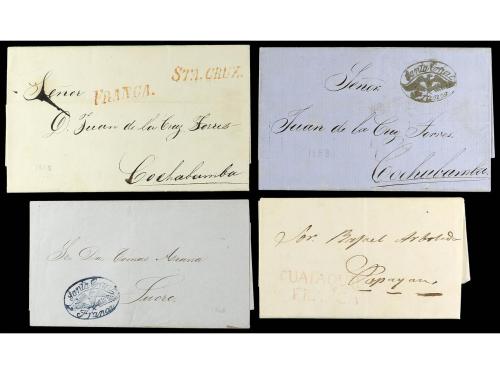 STA. CRUZ.
FRANCA.
Señor
D. Juan de la Cruz Torres
Cochabamba
Santa Cruz
Franca
Señor
Juan de la Cruz Torres
Cochabamba
Sr. Dn. Tomas
Sucre
Santa Cruz
Franca
Sor. Rafael Arboleda
Popayan
FRANCA